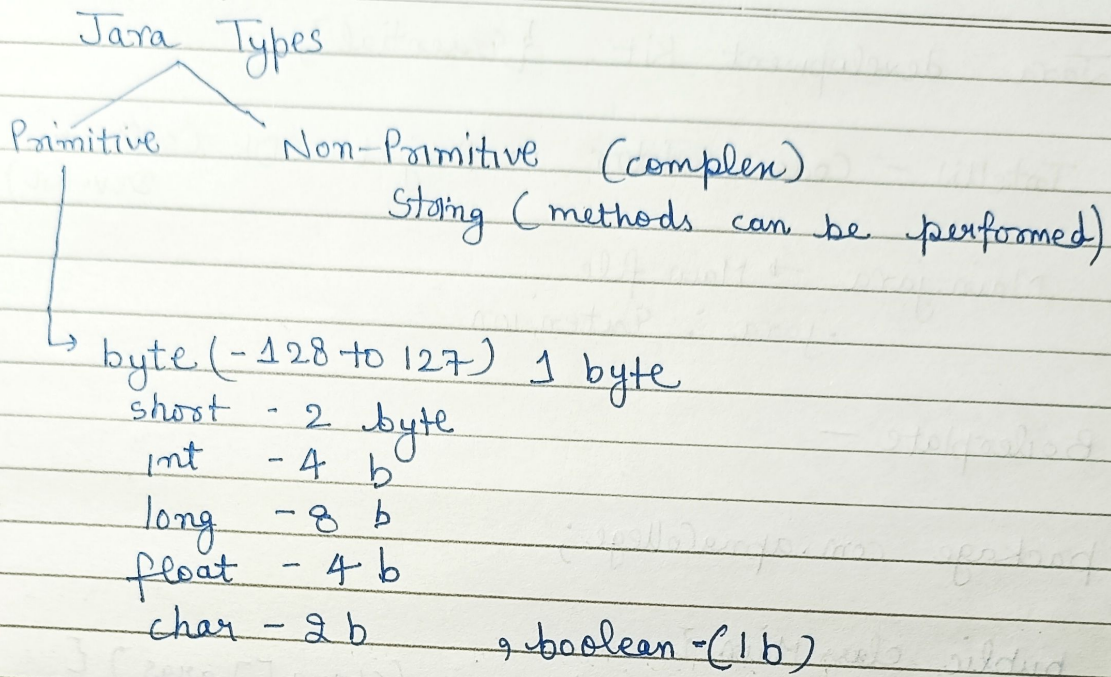 Java Types
Primitive Non-Primitive (complex)
String (methods can be performed)
byte (-128 to 127) 1 byte
short - 2 byte
int - 4 b
long - 8 b
float - 4 b
char - 2 b , boolean - (1 b)